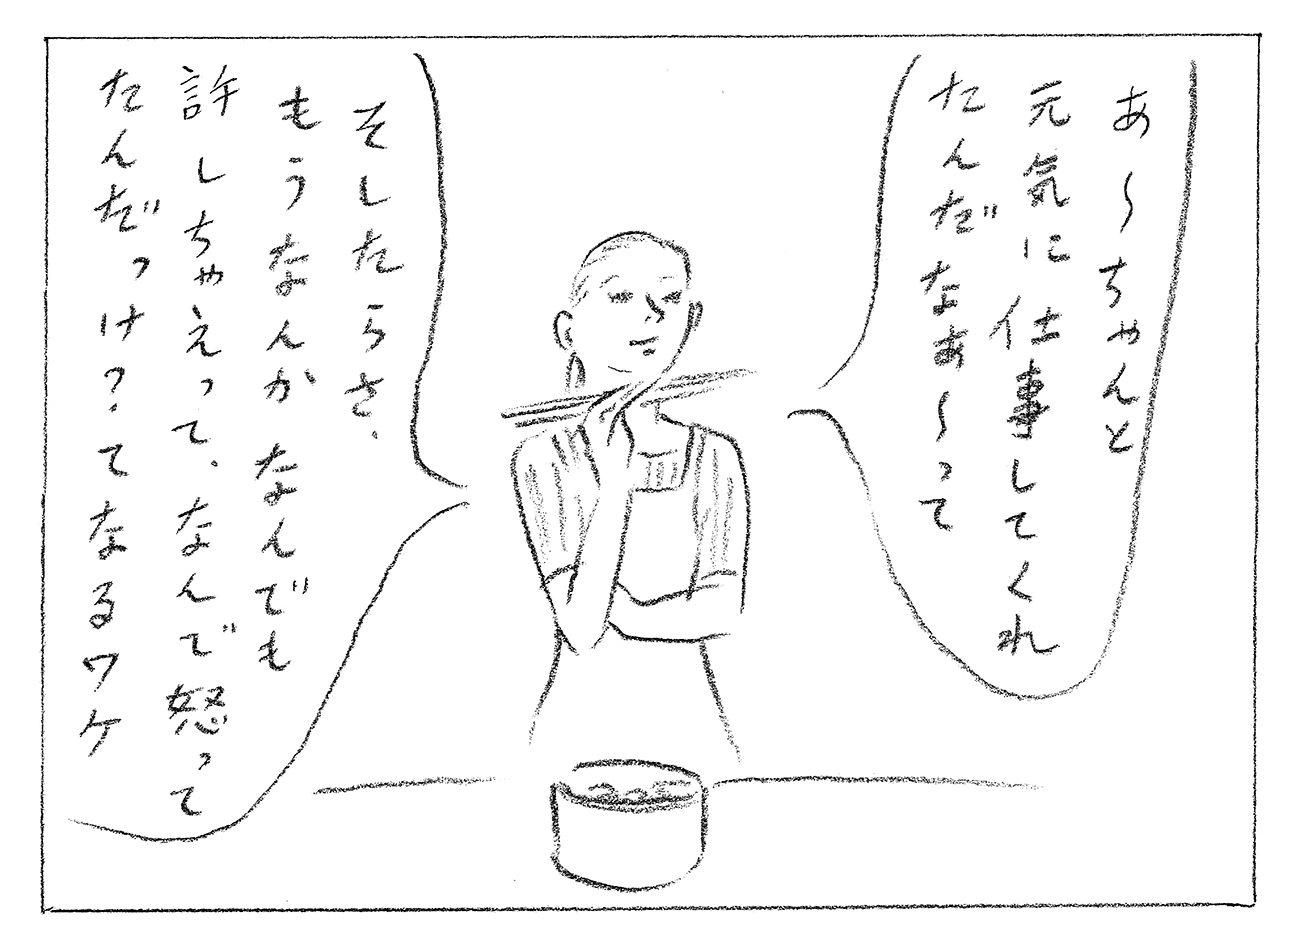 あ〜ちゃんと
元気に仕事してくれ
たんだなあ〜って
そしたらさ、
もうなんかなんでも
許しちゃえって、なんで怒って
たんだっけ？てなるワケ